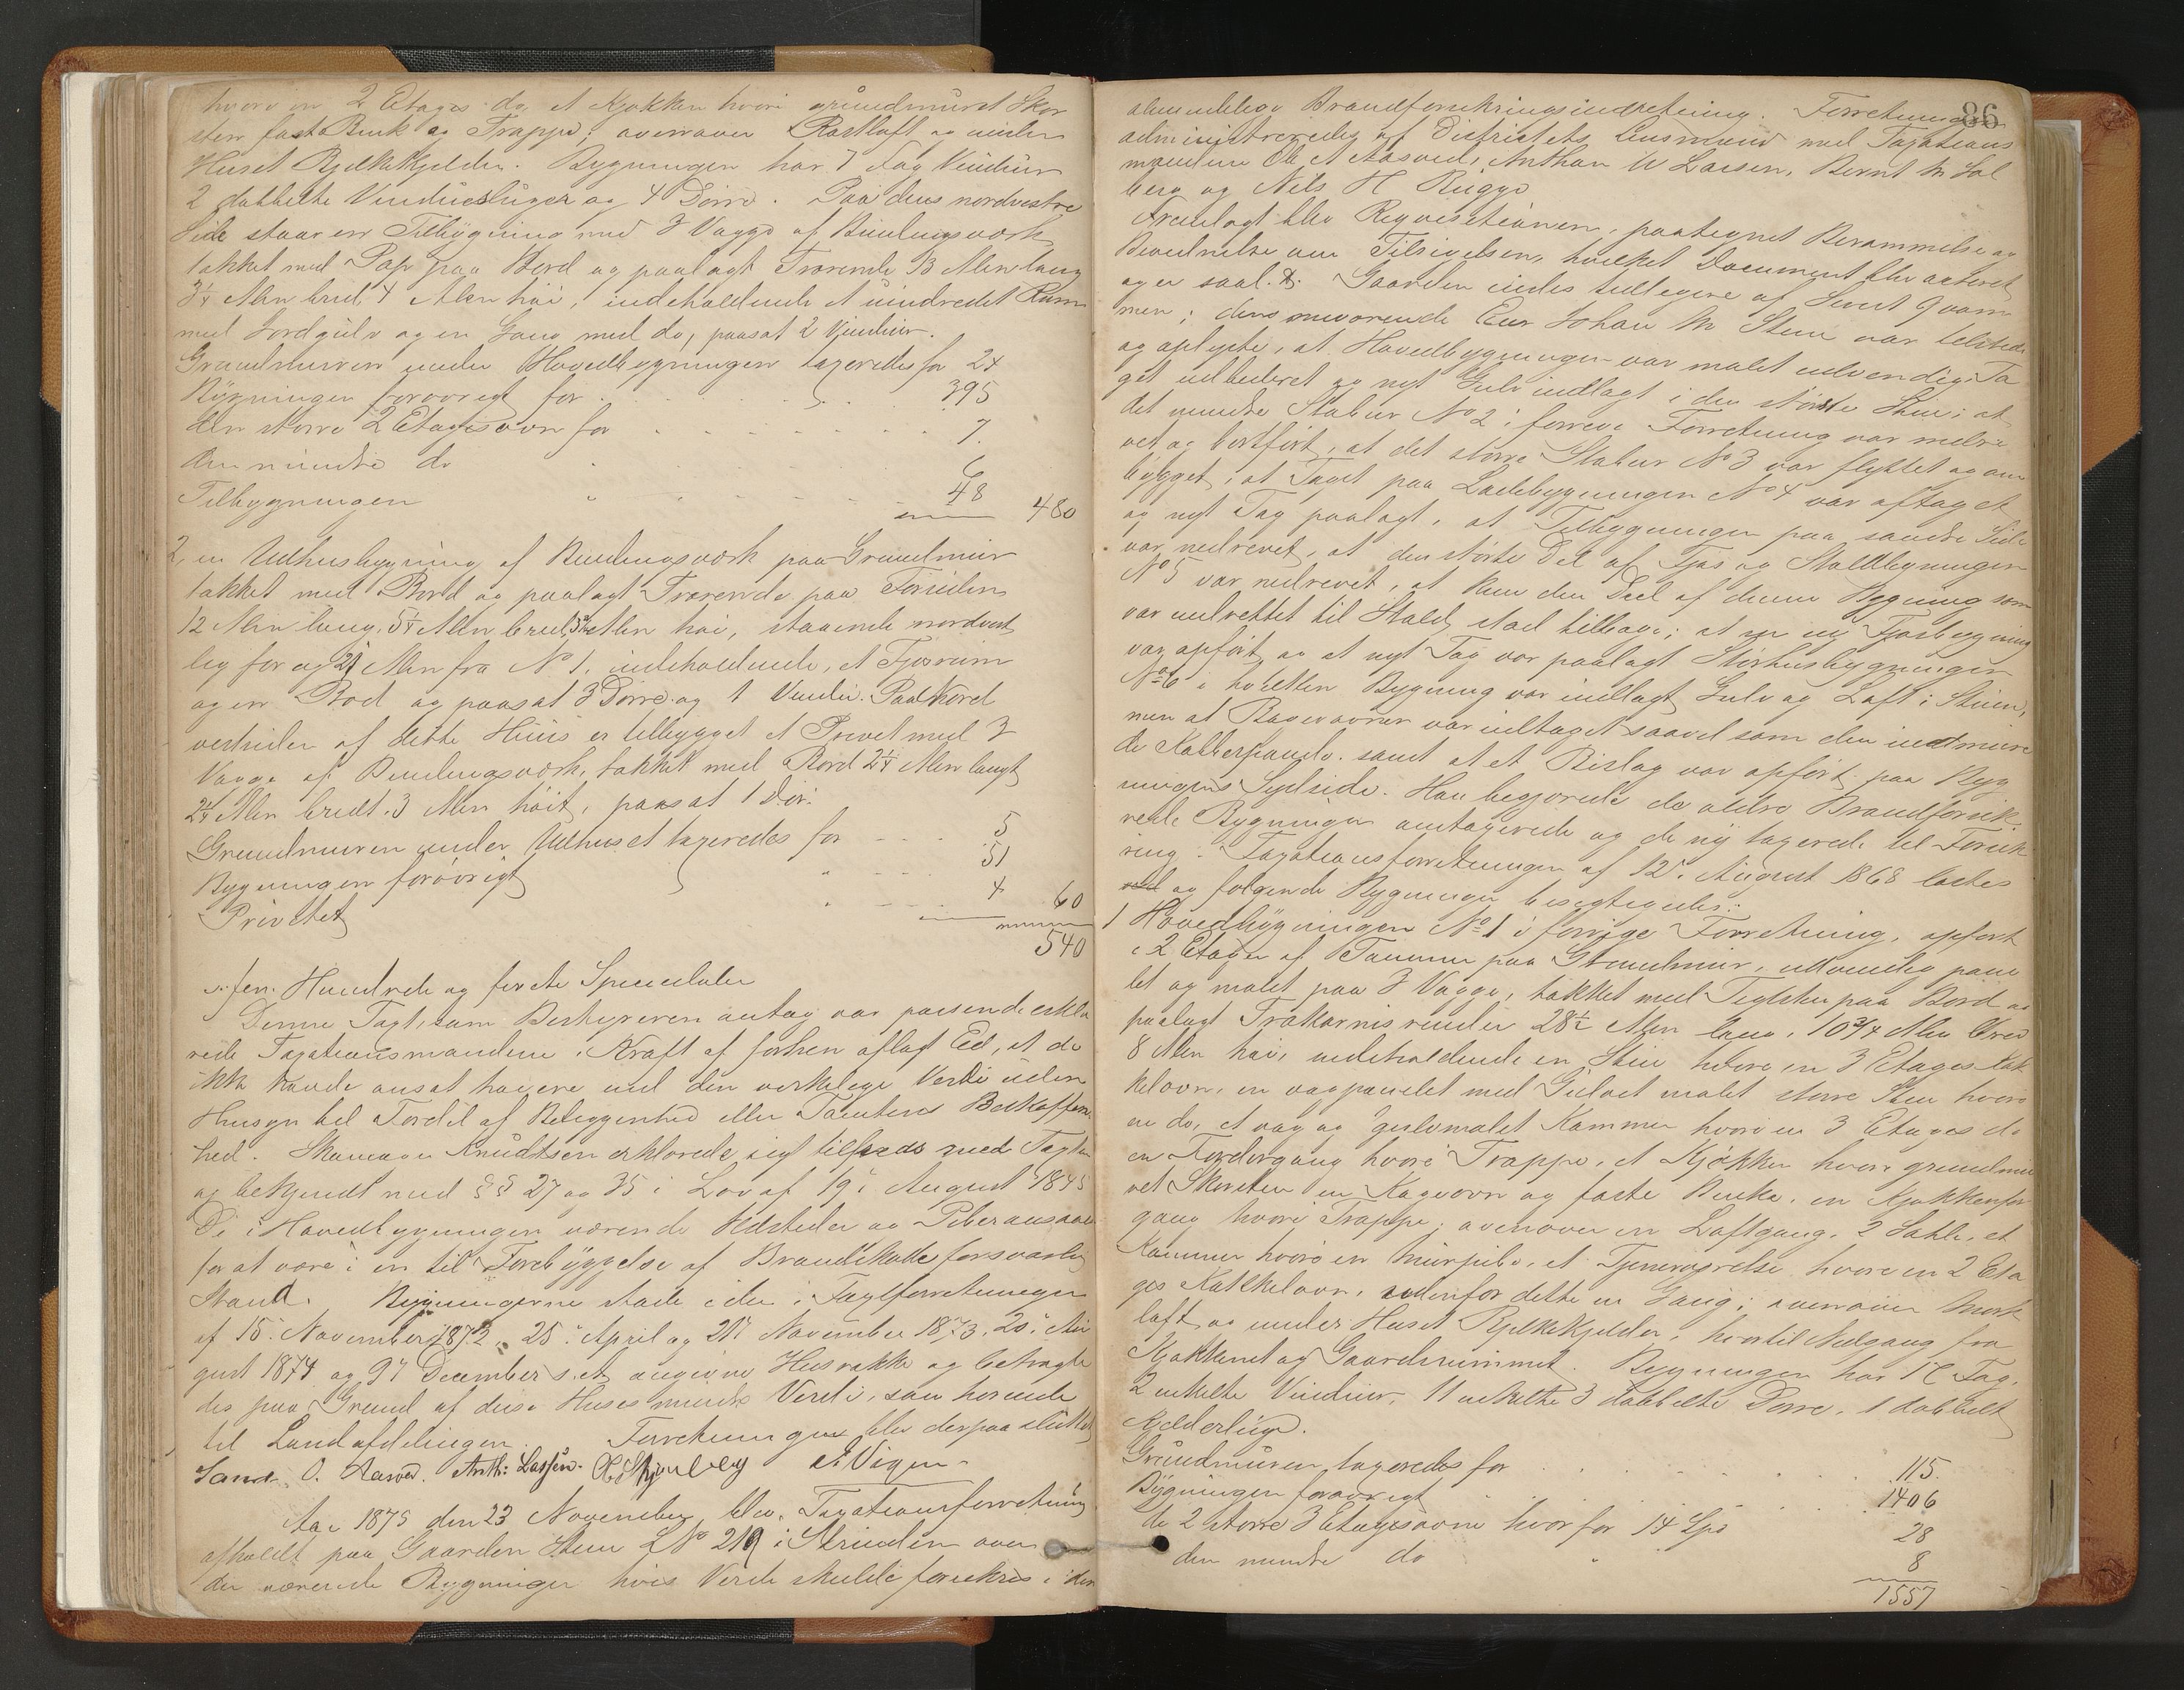 hvori en 2 Etages do, et Kjøkken hvori grundmuret Skor
sten faste Bænk og Trappe; ovenover Røstloft og under
Huset Bjelkekjelder. Bygningen har 7 Fag Vinduer
2 dobbelte Vinduesluger og 4 Dørre. Paa dens nordvestre
Side staar en Tilbygning med 3 Vægge af Bindingsværk,
takket med Pap paa Bord og paalagt Trærende 13 Alen lang
3¼ Alen bred 4 Alen høi, indeholdende et uindredet Rum
med Jordgulv og en Gang med do, paasat 2 Vinduer.
Grundmuren under Hovedbygningen taxeredes for 24
Bygningen forøvrigt for 395
den større 2 Etagesovn for 7
den mindre do 6
Tilbygningen " 48 480
2, en Udhusbygning af Bindingsværk paa Grundmur
takket med Bord og paalagt Trærende paa Forsiden
12 Alen lang, 5¼ Alen bred, Alen høi, staaende nordvest
lig for og 21 Alen fra No 1, indeholdende, et Fjøsrum
og en Bod og paasat 3 Dørre og 1 Vindu. Paa Nord
vestsiden af dette Huus er tilbygget et Privet med 3
Vægge af Bindingsværk, takket med Bord 2¼ Alen langt
2¼ Alen bredt, 3 Alen høit, paasat 1 Dør.
Grundmuren under Udhuset taxeredes for 5
Bygningen forøvrigt " 51
Privetet " 4 60
540
fem Hundrede og firti Speciedaler
Denne Taxt, som Bestyreren antog var passende erklæ
rede Taxationsmændene i Kraft af forhen aflagt Ed, at de
ikke havde ansat høiere end den virkelige Verdi uden
Hensyn til Fordel af Beliggenhed eller Tomtens Beskaffen
hed. Knudtsen erklærede sig tilfreds med Taxten
og bekjendt med §§ 27 og 35 i Lov af 19 August 1845
De i Hovedbygningen værende Ildsteder og Piber ansaaes
for at være i en til Forebyggelse af Brandskade forsvarlig
Stand. Bygningerne stode i den i Taxtforretninger
af 15 November 1872, 25 April og 21 November 1873, 20 Au
gust 1874 og 9 December s. A. angivne Husrække og betragte
des paa Grund af disse Huses mindre Verdi, som hørende
til Landafdelingen. Forretningen blev derpaa sluttet
Sand. O. Aasved. Anth: Lassen.
Aar 1875 den 23 November blev Taxationsforretning
afholdt paa Gaarden Stene LNo 219 i Strinden over
de værende Bygninger hvis Verdi skulde forsikres i den
86
almindelige Brandforsikringsindretning. Forretningen
administreredes af Districtets Lensmand med Taxations
mændene Ole A Aasved, Anthon W Larsen, Bernt M Sol
berg og Nils H Rigge
Fremlagt blev Reqvisitionen, paategnet Berammelse og
Bevidnelse om Tilsigelsen, hvilket Document blev acteret
og er saal. Gaarden indes tillegere af Sivert Qvam
men; dens nuværende Eier Johan M Stene var tilstede
og oplyste, at Hovedbygningen var malet udvendig, Ta
get udbedret og nyt Gulv indlagt i den største Stue; at
det mindre Stabur No 2 i forrige Forretning var nedre
vet og bortført, at det større Stabur No 3 var flyttet og om
bygget; at Taget paa Ladebygningen No 4 var aftaget
og nyt Tag paalagt, at Tilbygningen paa søndre Side
var nedrevet, at den største Del af Fjøs og Staldbygningen
No 5 var nedrevet, at kun den Deel af denne Bygning som
var indrettet til Stald, stod tilbage; at en ny Fjøsbygning
var opført og at nyt Tag var paalagt Storhusbygningen
No 6 i hvilken Bygning var indlagt Gulv og Loft i Stuen,
men at Bagerovnen var udtaget saavel som den indmure
de Kobberpande, samt at et Bislag var opført paa Byg
ningens Sydside. Han begjærede de ældre Brandforsik
rede Bygninger omtaxerede og de ny taxerede til Forsik
ring. Taxationsforretningen af 12 August 1868 læstes
og følgende Bygninger besigtigedes:
1 Hovedbygningen No 1 i forrige Forretning, opført
i 2 Etager af Tømmer paa Grundmur, udvendig pane
let og malet paa 3 Vægge, takket med Tegsten paa Bord og
paalagt Trækarnisrender 28½ Alen lang, 10¾ Alen bred
8 Alen høi, indeholdende en Stue hvori en 3 Etages Kak
kelovn, en vægpanelet med Gulvet malet større Stue hvori
en do, et væg og gulvmalet Kammer hvori en 3 Etages do
en Fordørgang hvori Trappe, et Kjøkken hvori grundmu
ret Skorsten en Kageovn og faste Bænke, en Kjøkkenfor
gang hvori Trappe; ovenover en Loftgang, 2 Sahle, et
Kammer hvori en Muurpibe, et Tjenerværelse hvori en 2 Eta
ges Kakkelovn, udenfor dette en Gang; ovenover Mørk
loft og under Huset Bjelkekjelder, hvortil Nedgang fra
Kjøkkenet og Gaardsrummet. Bygningen har 16 Fag,
2 enkelte Vinduer, 11 enkelte 3 dobbelte Dørre, 1 dobbelt
Kjelderluge.
Grundmuren taxeredes for 115
Bygningen forøvrigt 1406
de 2 større 3 Etagesovne hvor for 14 Spd 28
den mindre do " 8
1557